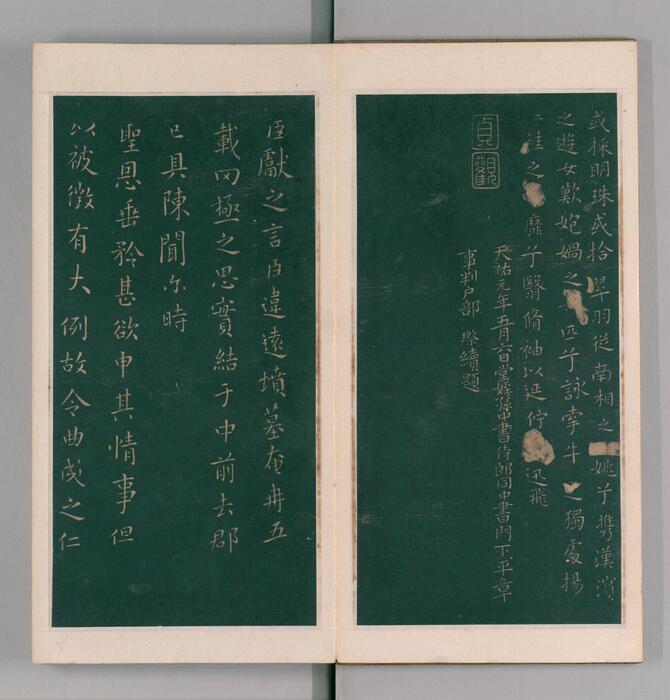 或採明珠或拾翠羽從南相之姚兮攜漢濱
之遊女歎媧之匹兮詠牽牛之獨處揚
袿之靡兮翳脩袖以延佇迅飛
貞觀
天祐元年五月六日堂姪孫中書侍郎同中書門下平章
事判戶部 璨續題
臣獻之言臣違遠墳墓奄冉五
載罔極之思實結于中前去郡
已具陳聞尔時
聖恩垂矜甚欲申其情事但
以被徵有大例故令曲成之仁